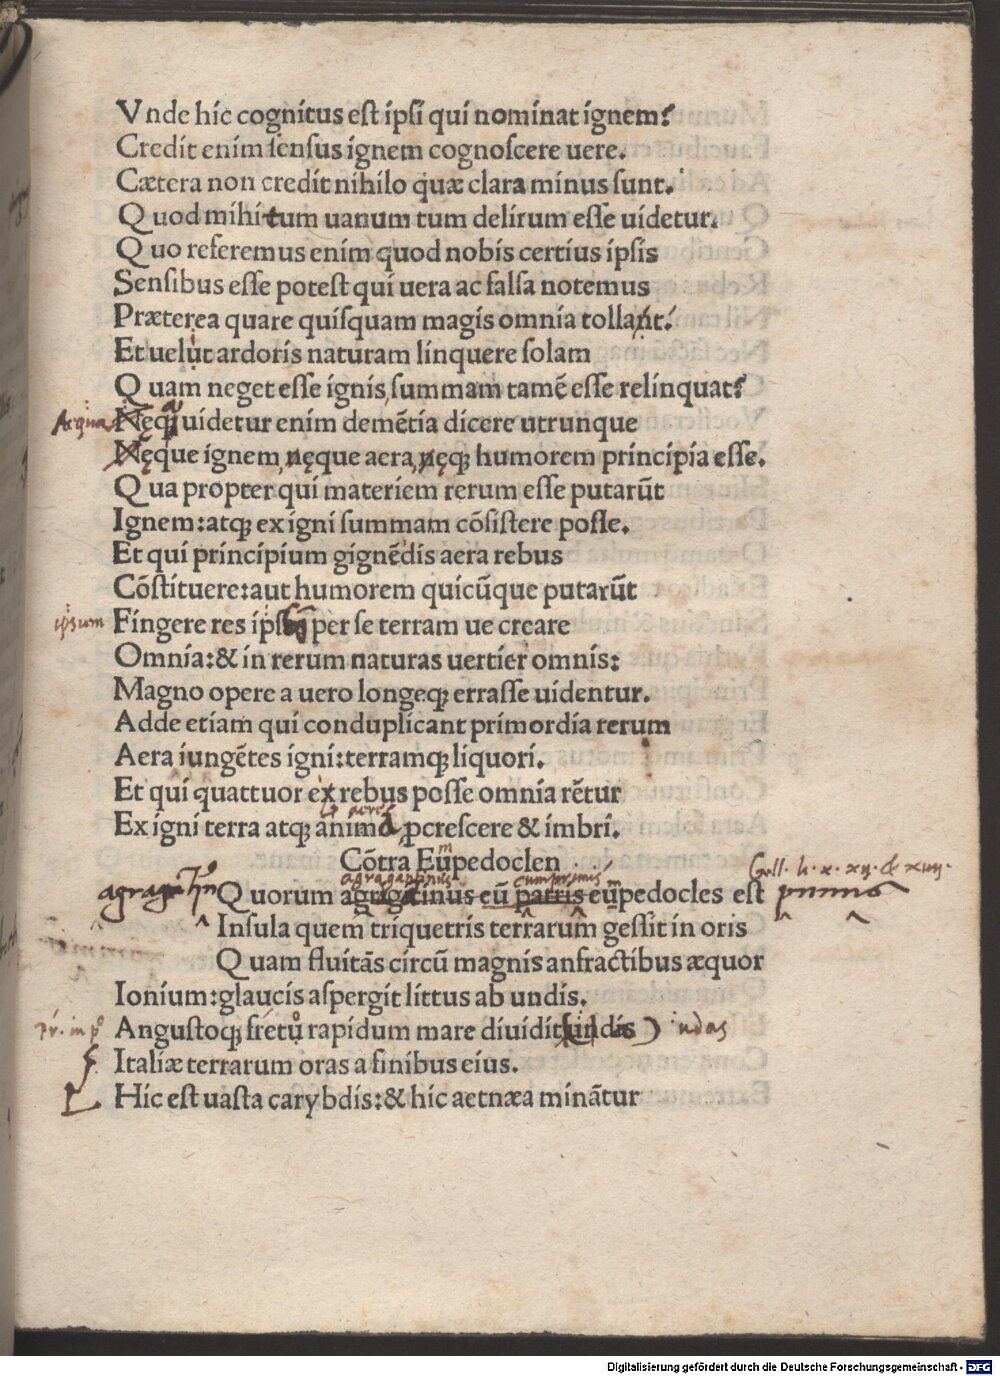 Vnde hic cognitus eſt ipſi qui nominat ignem?
Credit enim ſenſus ignem cognoſcere uere.
Cætera non credit nihilo quæ clara minus ſunt.
Quod mihi tum uanum tum delirum eſſe uidetur.
Quo referemus enim quod nobis certius ipſis
Senſibus eſſe poteſt qui uera ac falſa notemus
Præterea quare quiſquam magis omnia tollant?
Et uelut ardoris naturam linquere ſolam
Quam neget eſſe ignis ſummam tamē eſſe relinquat?
Aequa Neqꝫ uidetur enim demētia dicere utrunque
Nęque ignem nęque aera nęqꝫ humorem principia eſſe.
Qua propter qui materiem rerum eſſe putarūt
Ignem:atqꝫ ex igni ſummam cōſiſtere poſſe.
Et qui principium gignēdis aera rebus
Cōſtituere:aut humorem quicūque putarūt
ipsum Fingere res per ſe terram ue creare
Omnia:& in rerum naturas uertier omnis:
Magno opere a uero longeqꝫ erraſſe uidentur.
Adde etiam qui conduplicant primordia rerum
Aera iungētes igni:terramqꝫ liquori.
Et qui quattuor ex rebus poſſe omnia rētur
Ex igni terra atqꝫ anima ꝓcreſcere & imbri.
Cōtra Eūpedoclen
agragantinus cumprimis Gell. li. x. xıȷ. & xvıȷ.
Quorum agrigatinus eū patris eūpedocles est primis
Inſula quem triquetris terrarum geſſit in oris
Quam fluitās circū magnis anfractibus æquor
Ionium:glaucis aſpergit littus ab undis.
Anguſtoqꝫ fretu rapidum mare diuidit undis undas
Italiæ terrarum oras a finibus eius.
Hic eſt uaſta carybdis:& hic aetnæa minātur